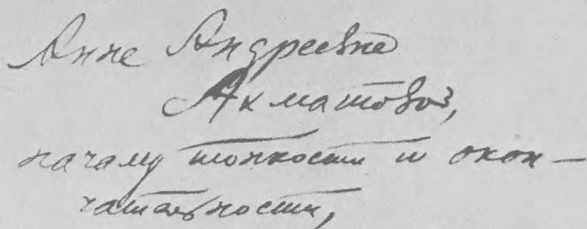 Анне Андреевне
Ахматовой,
началу тонкости и окон-
чательности,